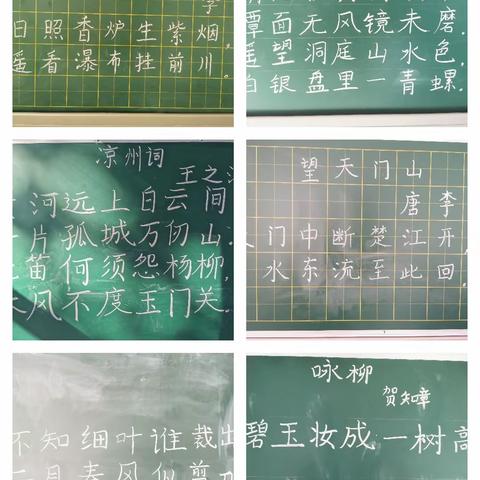 日照香炉生紫烟，
遥看瀑布挂前川。
潭面无风镜未磨.
遥望洞庭山水色,
白银盘里一青螺.
凉州词
王之
河远上白云间
片孤城万仞山.
笛何须怨杨柳,
风不度玉门关.
望天门山
唐 李
门中断楚江开,
水东流至此回.
不知细叶谁裁出
二月春风似剪刀
咏柳
贺知章
碧玉妆成一树高